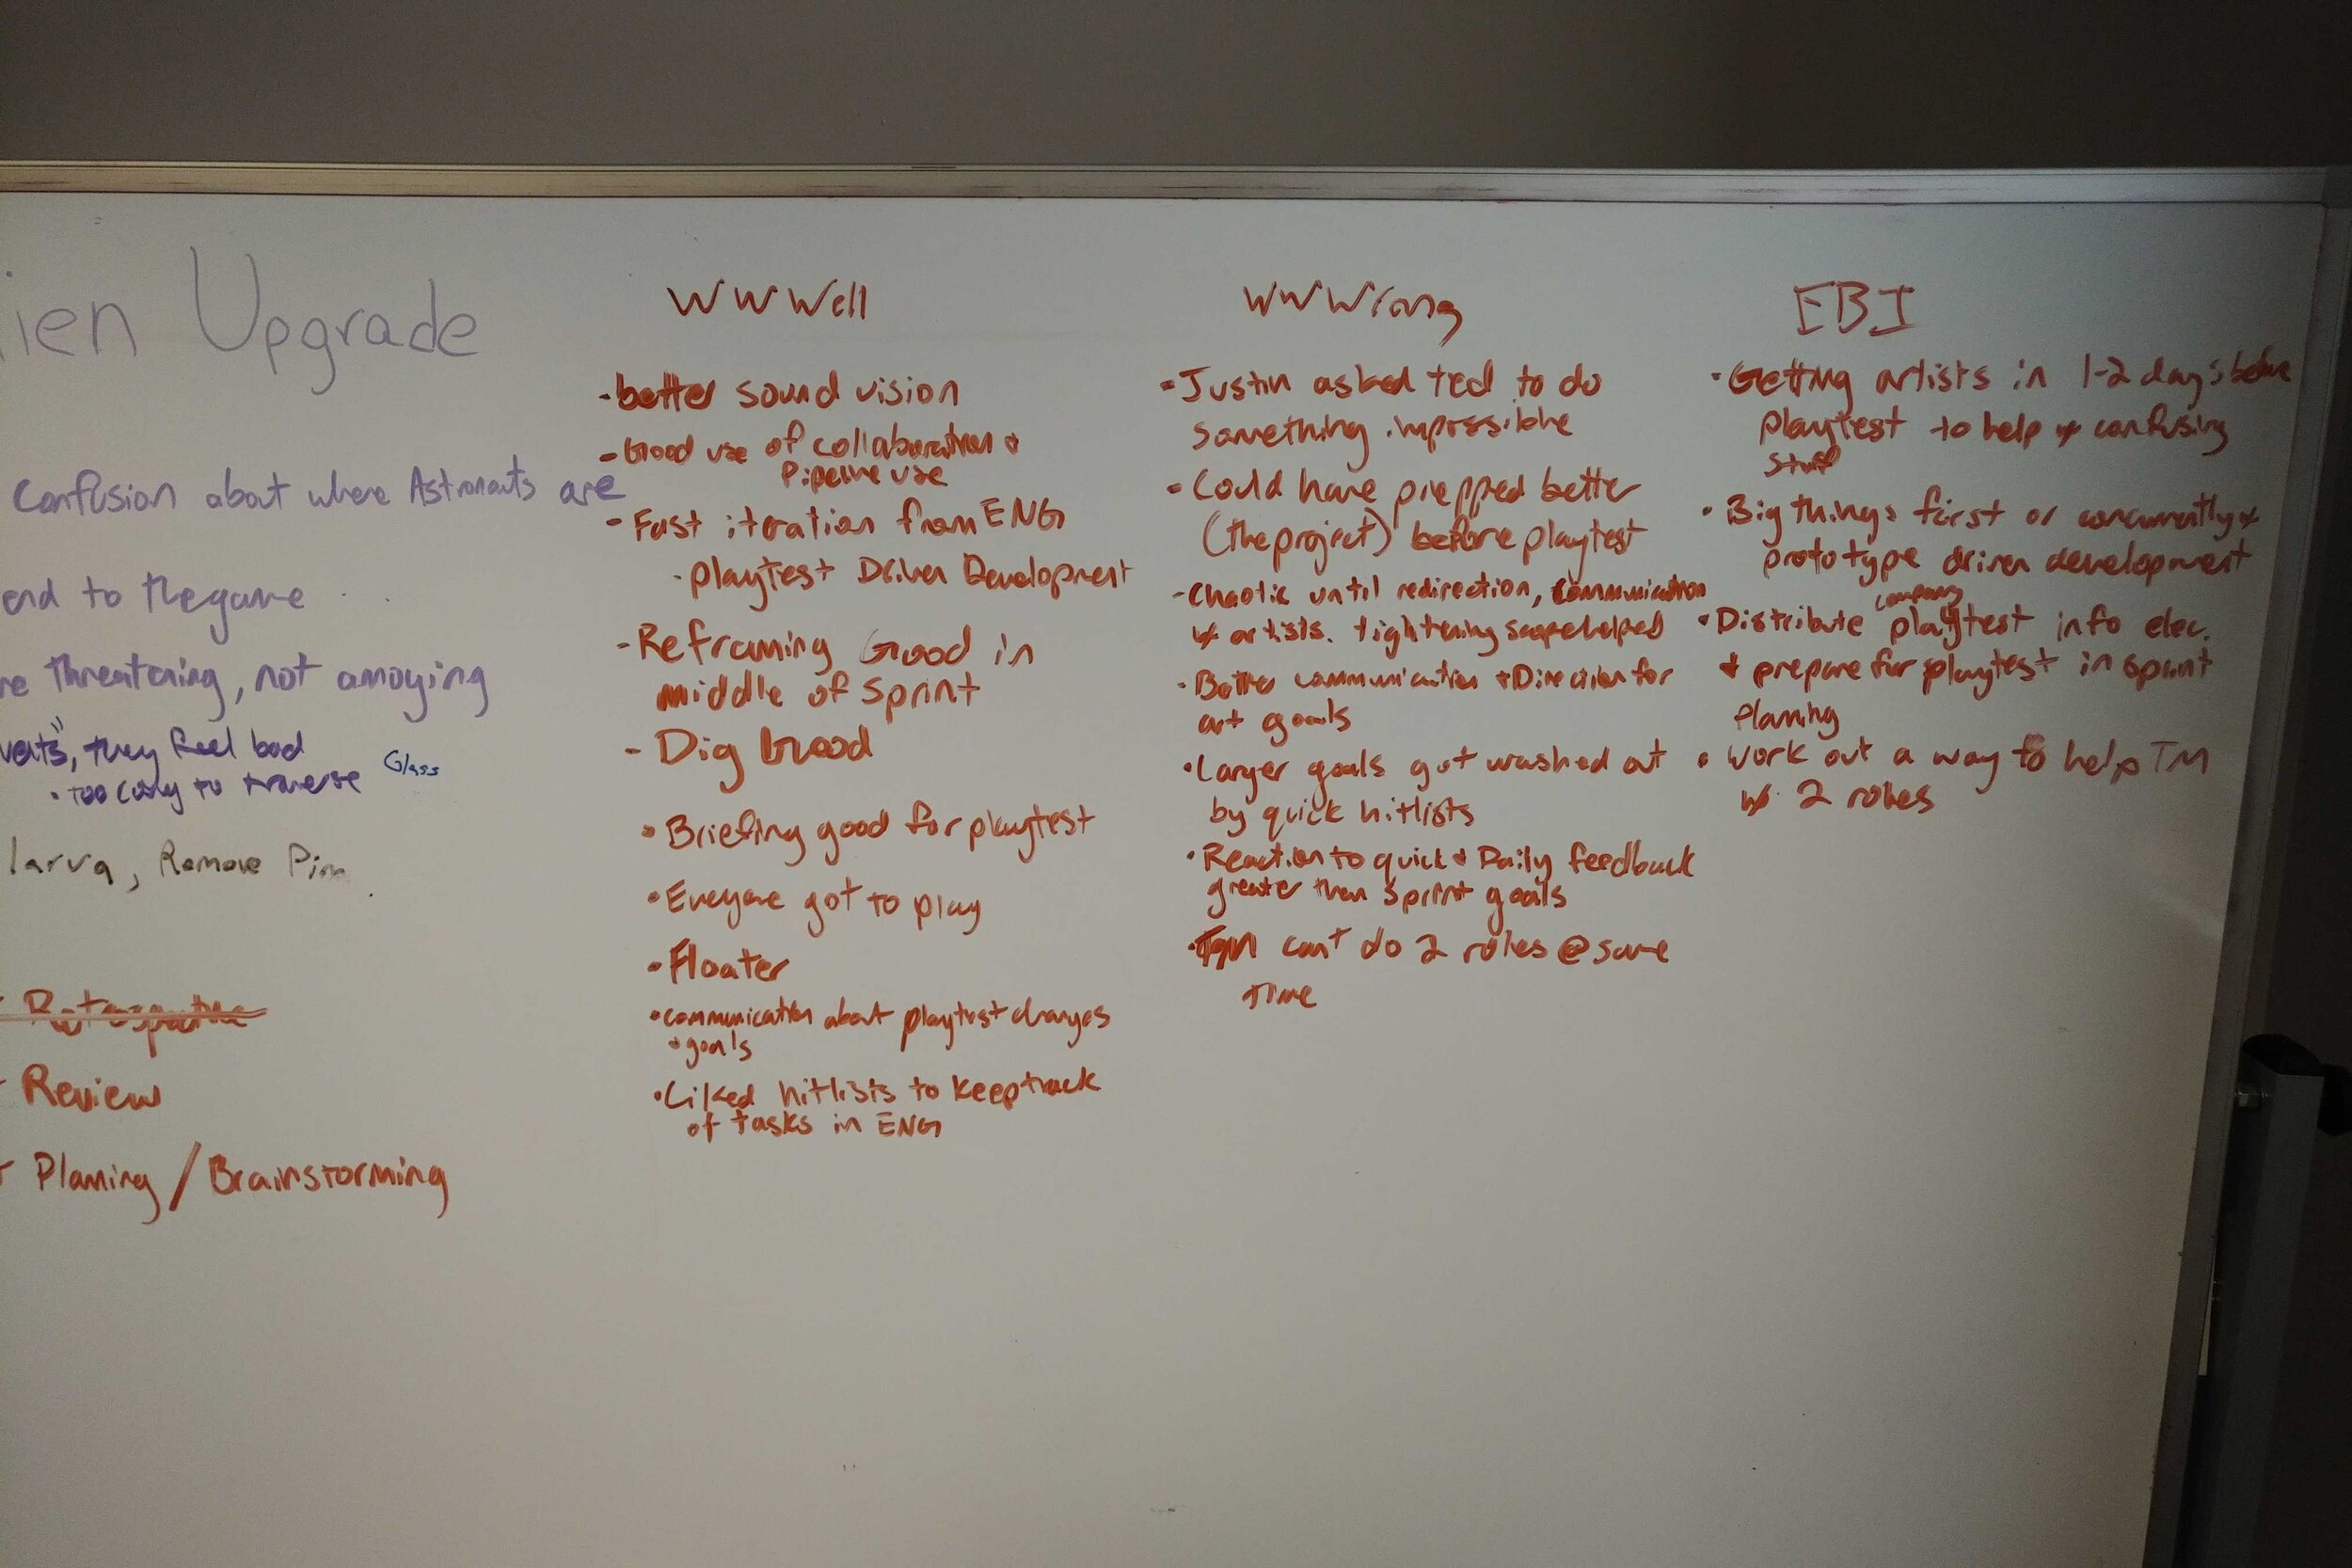 ien Upgrade
Confusion about where Astronauts are
end to the game
re threatening, not annoying
vents", they feel bad
• too long to traverse
Glass
larva, Remove
Retrospective
Review
Planing / Brainstorming
WWWell
- better sound vision
- Good use of collaboration +
Pipeline use
- Fast iteration from ENG
- playtest Driven Development
- Reframing Good in
middle of sprint
- Dig Good
• Briefing good for playtest
• Everyone got to play
• Floater
• communication about playtest changes
+ goals
• Liked hitlists to keep track
of tasks in ENG
WWWrong
- Justin asked ted to do
something impossible
• Could have prepped better
(the project) before playtest
- Chaotic until redirection, communication
w/ artists. tightening scope helped
• Better communication + Direction for
art goals
• Larger goals got washed out
by quick hitlists
• Reaction to quick + Daily feedback
greater than sprint goals
• can't do 2 roles @ same
time
EBI
• Getting artists in 1-2 days before
playtest to help w/ confusing
stuff
• Big things first or concurrently w/
prototype driven development
company
• Distribute playtest info elec.
+ prepare for playtest in sprint
planing
• Work out a way to help TM
w/ 2 roles